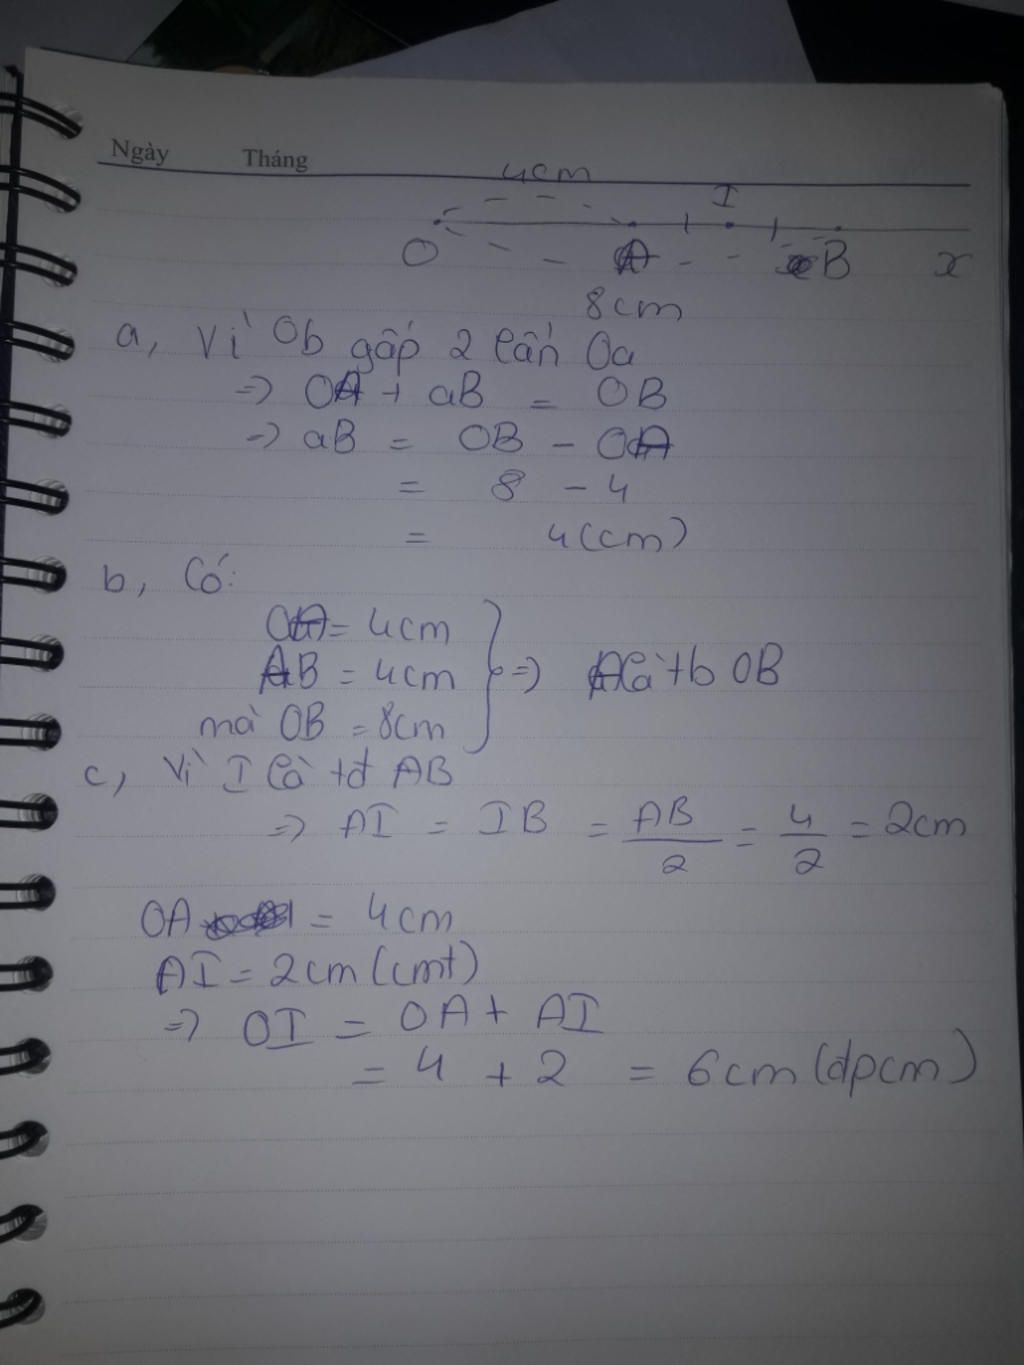 Ngày Tháng
4cm
I
O A B x
8cm
a, Vì Ob gấp 2 lần Oa
=> OA + aB = OB
=> aB = OB - OA
= 8 - 4
= 4(cm)
b, Có:
OA = 4cm
AB = 4cm => A là tb OB
mà OB = 8cm
c, Vì I là tđ AB
=> AI = IB = AB/2 = 4/2 = 2cm
OA = 4cm
AI = 2cm (cmt)
=> OI = OA + AI
= 4 + 2 = 6cm (đpcm)